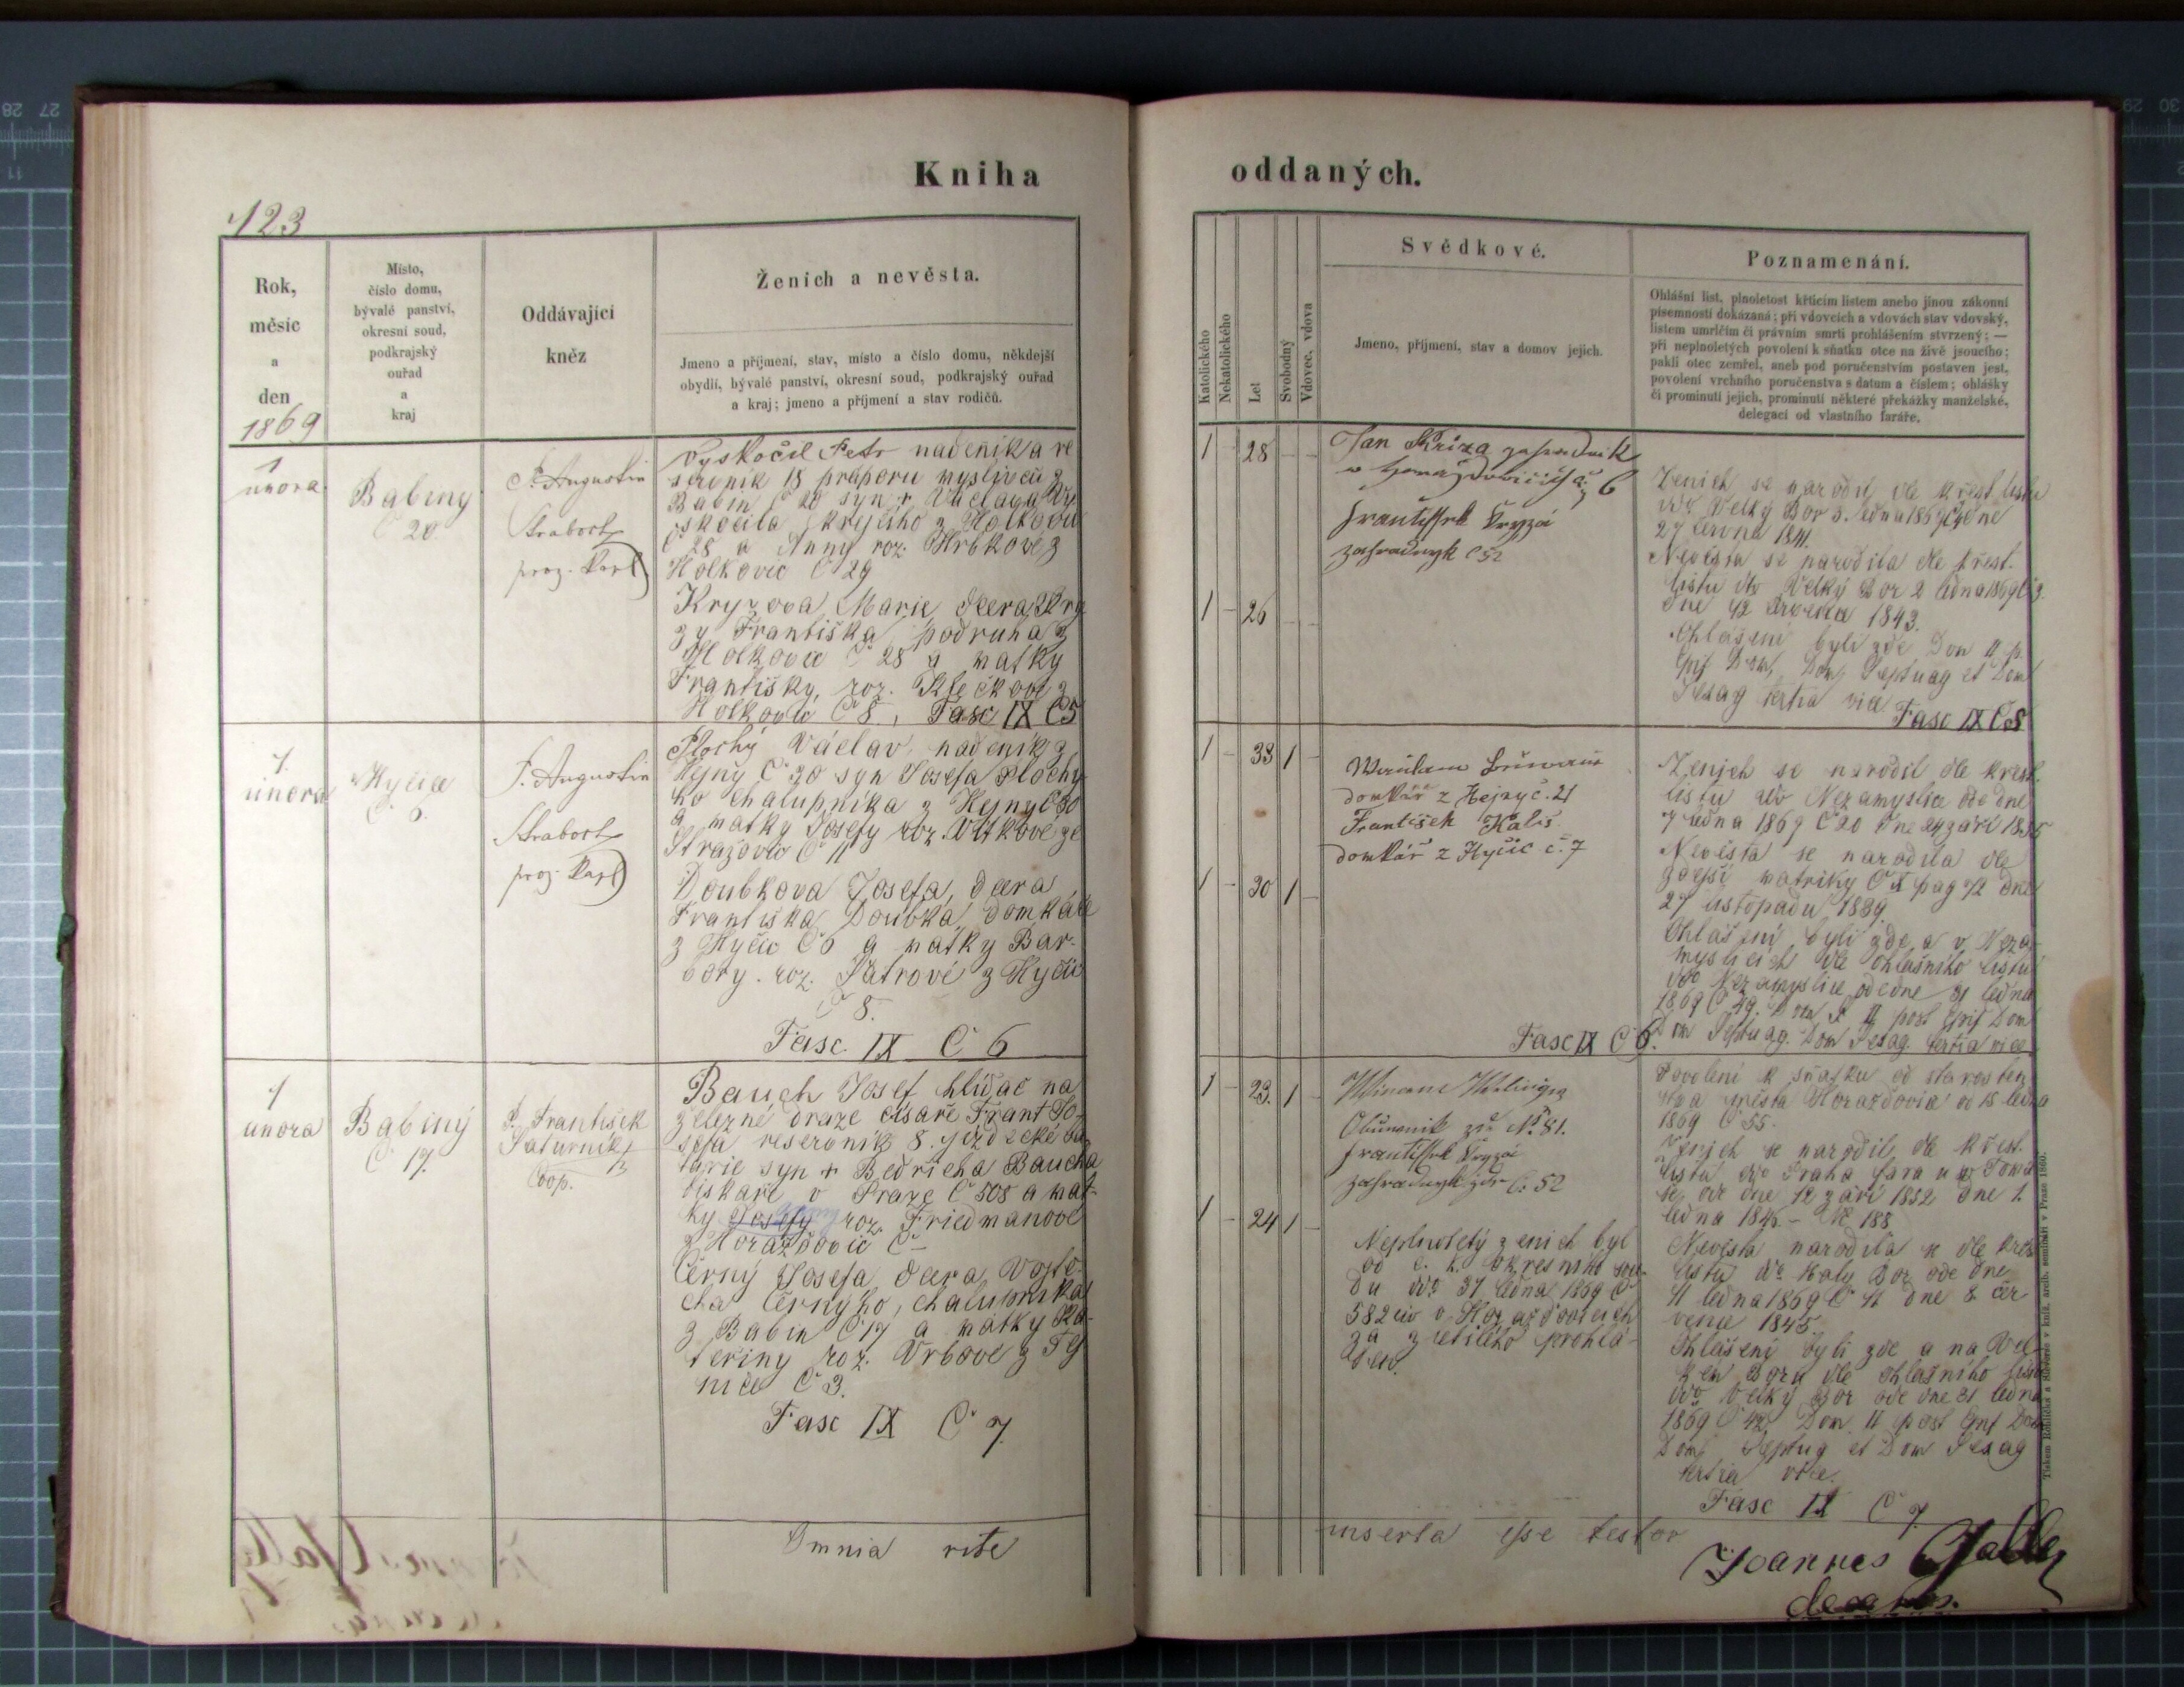 Kniha
oddaných.
123
Rok,
měsíc
a
den
1869
Místo,
číslo domu,
bývalé panství,
okresní soud,
podkrajský
ouřad
a
kraj
Oddávající
kněz
Ženich a nevěsta.
Jmeno a příjmení, stav, místo a číslo domu, někdejší
obydlí, bývalé panství, okresní soud, podkrajský ouřad
a kraj; jmeno a příjmení a stav rodičů.
Katolického
Nekatolického
Let
Svobodný
Vdovec, vdova
Svědkové.
Jmeno, příjmení, stav a domov jejich.
Poznamenání.
Ohlášní list, plnoletost křticím listem anebo jinou zákonní
písemností dokázaná; při vdovcích a vdovách stav vdovský,
listem umrlčím či právním smrti prohlášením stvrzený; —
při neplnoletých povolení k sňatku otce na živě jsoucího;
pakli otec zemřel, aneb pod poručenstvím postaven jest,
povolení vrchního poručenstva s datum a číslem; ohlášky
či prominutí jejich, prominutí některé překážky manželské,
delegací od vlastního faráře.
1
února
Babiny
Č 20
P. Augustin
Vyskočil Petr nádeník a re
servník 18 praporu myslivců z
Babin Č 20 syn + Václava Vy
skočila krejčího z Holkovic
Č 28 a Anny roz. Hrbkové z
Holkovic Č 29
Kryzova Marie dcera Kry
zy Františka podruha z
Holkovic Č 28 a matky
Františky, roz. Klečkové z
Holkovic Č 8, Fasc IX Č5
1 - 28 - -
1 - 26 - -
Jan Kříza zahradník
Č 6
Frantisek Kryzá
zahradnyk č 52
Ženich se narodil dle křest. listu
ddo Velký Bor 3. ledna 1869 dne
27 června 1841.
Nevěsta se narodila dle křest.
listu ddo Velký Bor 2 ledna 1869
dne 12 1843.
Ohlášeni byli zde Dom II p.
Epif Dom, Dom Septuag et Dom
Sexag tertia vice
Fasc IX Č5
1.
února
Hyčic
Č 6.
P. Augustin
Plochý Václav nádeník z
Hejny Č 30 syn Josefa Ploché
ho chalupníka z Hejny Č 30
a matky Josefy roz. Vítkové ze
Stražovic Č 11
Doubková Josefa, dcera
Františka Doubka, domkáře
z Hyčic Č 6 a matky Bar-
bory. roz. Patrové z Hyčic
Č 8.
Fasc IX Č 6
1 - 33 1 -
1 - 30 1 -
domkář z Hejny č. 21
František Kališ
domkář z Hyčic č. 7
Fasc IX Č 6.
Ženich se narodil dle křest.
listu ddo Nezamyslice ode dne
7 ledna 1869 Č 20 dne 24 září 1835
Nevěsta se narodila dle
zdejší matriky pag 72 dne
27 listopadu 1839.
Ohlášeni byli zde a v Neza
myslicích dle ohlašního listu
ddo Nezamyslice ode dne 31 ledna
1869 Dom II post Epif Dom
Dom Septuag. Dom Sexag. tertia vice
1
února
Babiny
Č 17.
P. František
Saturník
Coop.
Bauch Josef hlídač na
železné dráze císaře Frant Jo-
sefa reservník 8. jezdecké ba-
tarie syn + Bedřicha Baucha
tiskaře v Praze Č 508 a mat-
ky Josefy roz. Friedmanové
z Horažďovic Č -
Černý Josefa dcera Vojtě-
cha Černýho, chalupníka
z Babin Č 17 a matky Ka-
teřiny roz. Vrbové z Tý
nice Č 3.
Fasc IX Č 7.
1 - 23. 1 -
1 - 24 1 -
No 81.
Frantisek Kryzá
zahradnyk zde č. 52
Neplnoletý ženich byl
od c. k. okresního sou-
du ddo 31 ledna 1869 Č
582 civ v Horažďovicích
za zletilého prohlá-
šen.
Povolení k sňatku od starosten
stva města Horažďovic od 18 ledna
1869 Č 55.
Ženich se narodil dle křest.
listu ddo Praha fara u sv Tomá
še, ode dne 12 září 1852 dne 1.
ledna 1846 - 188
Nevěsta narodila se dle křest.
listu ddo Malý Bor ode dne
11 ledna 1869 Č 11 dne 8 čer
vence 1845
Ohlášeni byli zde a na Vel
kém Boru dle ohlašního listu
ddo Velký Bor ode dne 31 ledna
1869 Č 42. Dom II post Epif Dom
Dom Septug et Dom Sexag
tertia vice.
Fasc IX Č 7.
Omnia rite
inserta esse testor
Joannes
decanus.